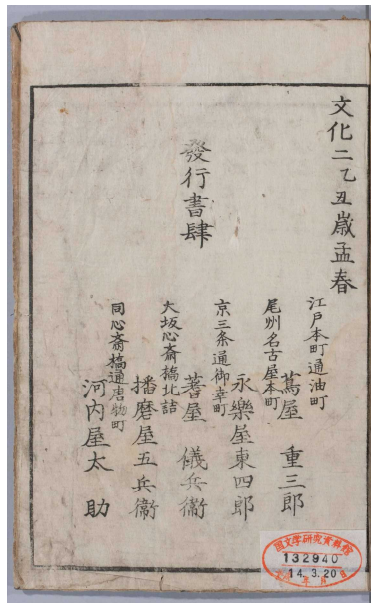 文化二乙丑歳孟春
發行書肆
江戸本町通油町
蔦屋 重三郎
尾州名古屋本町
永樂屋東四郎
京三条通御幸町
蓍屋 儀兵衞
大坂心斎橋北詰
播磨屋五兵衞
同心斎橋通唐物町
河内屋太 助
国文学研究資料館
132940
14.3.20